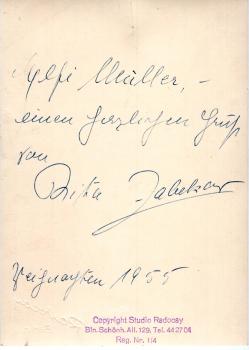 Müller, –
einen herzlichen Gruß
von
Brita
Weihnachten 1955
Copyright Studio Radoosy
Bln. Schönh. All. 129, Tel. 442704
Reg. Nr. 1/4